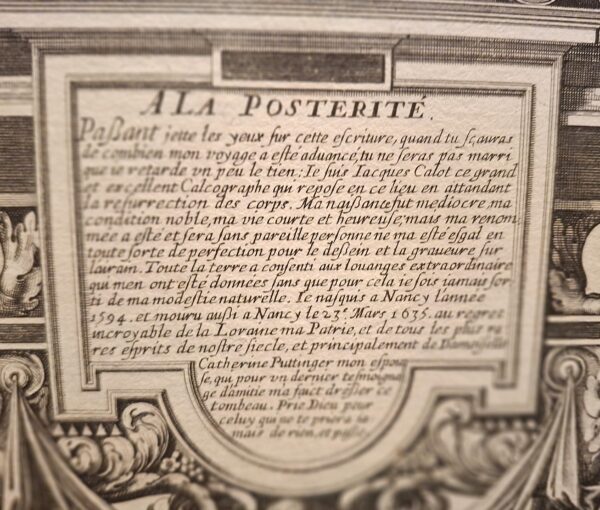 A LA POSTERITÉ.
Paßant jette les yeux sur cette escriture, quand tu sçauras
de combien mon voyage a esté aduancé, tu ne seras pas marri
que ie retarde vn peu le tien; Ie suis Iacques Calot ce grand
et excellent Calcographe qui repose en ce lieu en attandant
la resurrection des corps. Ma naißance fut mediocre ma
condition noble, ma vie courte et heureuse; mais ma renom
mée a esté et sera sans pareille personne ne ma esté esgal en
toute sorte de perfection pour le deßein et la graueure sur
lairain. Toute la terre a consenti aux louanges extraordinaire
qui men ont esté données sans que pour cela ie sois iamais sor
ti de ma modestie naturelle. Ie nasquis a Nancy lannée
1594. et mouru außi a Nancy le 23e. Mars 1635. au regret
incroyable de la Loraine ma Patrie, et de tous les plus ra
res esprits de nostre siecle, et principalement de Damoiselle
Catherine Puttinger mon espou
se, qui pour vn dernier tesmoigna
ge d'amitie ma fact dreßer ce
tombeau. Prie Dieu pour
celuy qui ne te priera ia
mais de rien, et paße